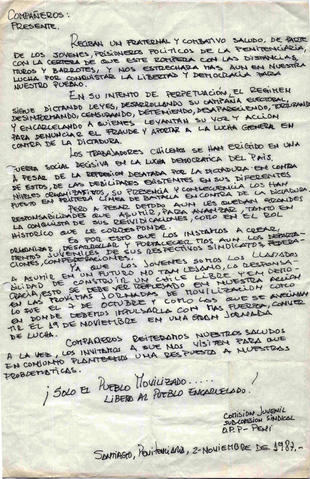 COMPAÑEROS:
PRESENTE.
RECIBAN UN FRATERNAL Y COMBATIVO SALUDO, DE PARTE
DE LOS JOVENES, PRISIONEROS POLITICOS DE LA PENITENCIARIA,
CON LA CERTEZA DE QUE ESTE ROMPERA CON LAS DISTANCIAS,
MUROS Y BARROTES, Y NOS ESTRECHARA MAS AUN EN NUESTRA
LUCHA POR CONQUISTAR LA LIBERTAD Y DEMOCRACIA PARA
NUESTRO PUEBLO.
EN SU INTENTO DE PERPETUACION, EL REGIMEN
SIGUE DICTANDO LEYES, DESARROLLANDO SU CAMPAÑA ELECTORAL,
DESINFORMANDO, CENSURANDO, DETENIENDO, DESAPARECIENDO, TORTURANDO
Y ENCARCELANDO A QUIENES LEVANTAN SU VOZ Y ACCION
PARA DENUNCIAR EL FRAUDE Y APORTAR A LA LUCHA GENERAL EN
CONTRA DE LA DICTADURA.
LOS TRABAJADORES CHILENOS SE HAN ERIGIDO EN UNA
FUERZA SOCIAL DECISIVA EN LA LUCHA DEMOCRATICA DEL PAIS.
A PESAR DE LA REPRESION DESATADA POR LA DICTADURA EN CONTRA
DE ESTOS, DE LAS DEBILIDADES EXISTENTES EN SUS DIFERENTES
NIVELES ORGANIZATIVOS, SU PRESENCIA Y CONSECUENCIA LOS HAN
PUESTO EN PRIMERA LINEA DE BATALLA EN CONTRA DE LA DICTADURA.
PERO A PESAR DE TODO AUN LES QUEDAN GRANDES
RESPONSABILIDADES QUE ASUMIR, PARA AVANZAR TANTO EN
LA CONQUISTA DE SUS REIVINDICACIONES COMO EN EL ROL
HISTORICO QUE LE CORRESPONDE.
ES POR ESTO QUE LOS INSTAMOS A CREAR,
ORGANIZAR, DESARROLLAR Y FORTALECER MAS AUN LOS DEPARTA-
MENTOS JUVENILES EN SUS RESPECTIVOS SINDICATOS, FEDERA-
CIONES, CONFEDERACIONES.
YA QUE LOS JOVENES SOMOS LOS LLAMADOS
A ASUMIR EN UN FUTURO NO TAN LEJANO, LA RESPONSA-
BILIDAD DE CONSTRUIR UN CHILE LIBRE Y EN DEMO-
CRACIA, ESTO SE DEBE VER REFLEJADO EN NUESTRA ACCION
EN LAS PROXIMAS JORNADAS DE MOVILIZACION COMO
LO FUE EL 7 DE OCTUBRE Y COMO LAS QUE SE AVECINAN
EN DONDE DEBEMOS IMPULSARLA CON MAS FUERZA, CONVER
TIR EL 19 DE NOVIEMBRE EN UNA GRAN JORNADA
DE LUCHA.
COMPAÑEROS REITERAMOS NUESTROS SALUDOS
A LA VEZ, LOS INVITAMOS A QUE NOS VISITEN PARA QUE
EN CONJUNTO PLANTEEMOS UNA RESPUESTA A NUESTRAS
PROBLEMATICAS.
¡SOLO EL PUEBLO MOVILIZADO.....
LIBERA AL PUEBLO ENCARCELADO!
COMISION JUVENIL
SUBCOMISION SINDICAL
O.P.P - PENI
SANTIAGO, PENITENCIARIA, 2-NOVIEMBRE DE 1987.-